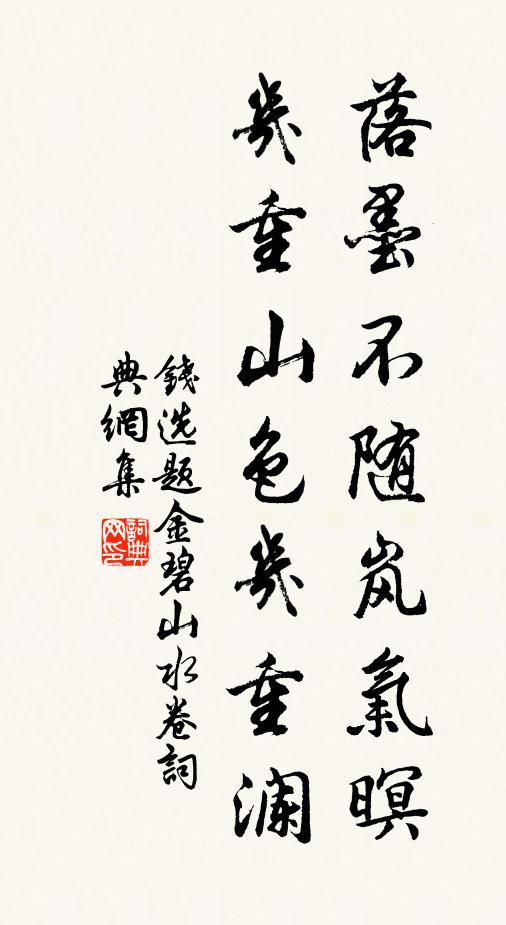 落墨不随岚氣暝
幾重山色幾重澜
錢选题金碧山水卷詞
典網集
詞典
网印